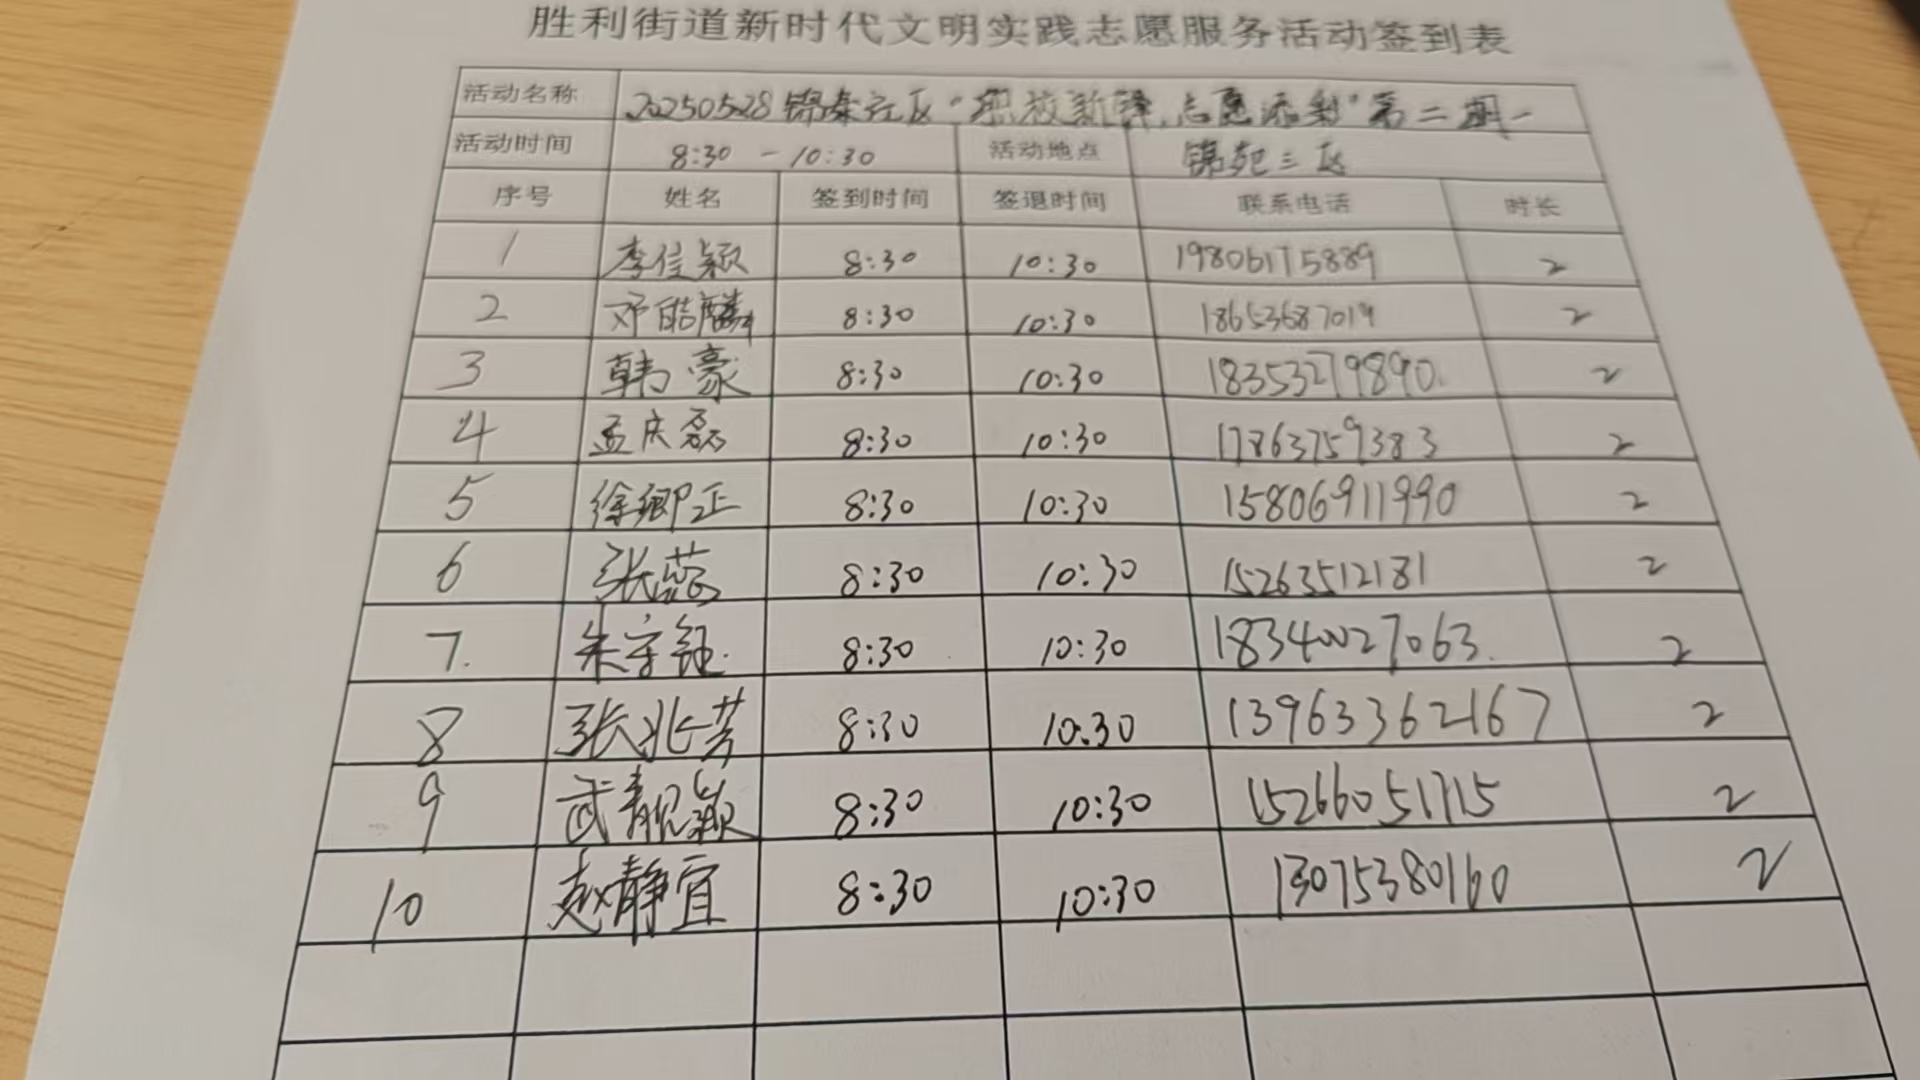 胜利街道新时代文明实践志愿服务活动签到表
活动名称 20250528锦泰社区“职校新锋,志愿添彩”第二期一
活动时间 8:30 - 10:30 活动地点 锦苑三区
序号 姓名 签到时间 签退时间 联系电话 时长
1 李佳颖 8:30 10:30 19806175889 2
2 邓皓麟 8:30 10:30 18653687019 2
3 韩豪 8:30 10:30 18353279890. 2
4 孟庆磊 8:30 10:30 17863759383 2
5 徐卿正 8:30 10:30 15806911990 2
6 张蕊 8:30 10:30 15263512181 2
7. 朱宇钰. 8:30 10:30 18340027063. 2
8 张兆芳 8:30 10.30 13963362167 2
9 武靓颖 8:30 10:30 15266051715 2
10 赵静宜 8:30 10:30 13075380160 2